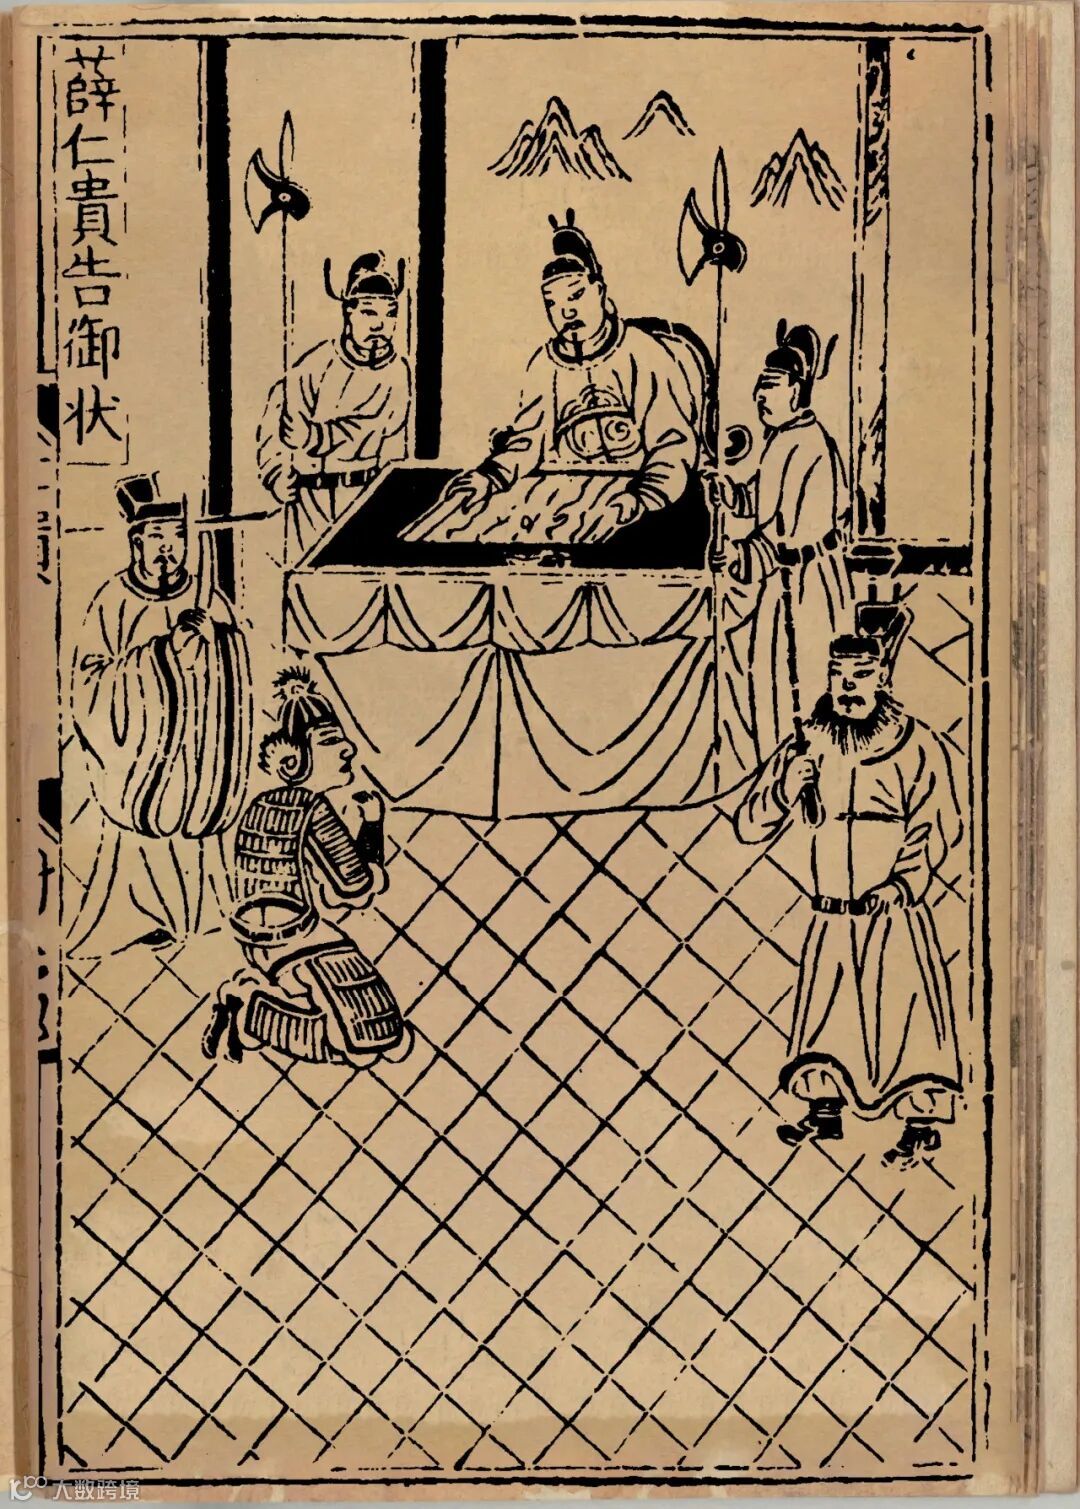 薛仁貴告御状
大数跨境